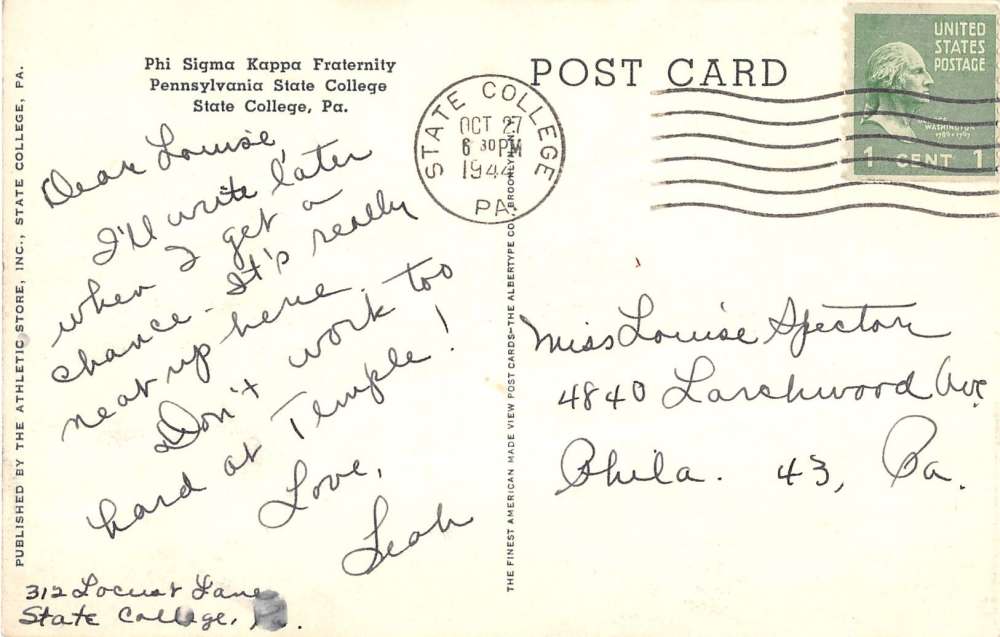 Phi Sigma Kappa Fraternity
Pennsylvania State College
State College, Pa.
POST CARD
UNITED
STATES
POSTAGE
WASHINGTON
1 CENT 1
STATE COLLEGE
OCT 27
6 30 PM
1944
PA.
Dear Louise,
I'll write later
when I get a
chance. It's really
neat up here.
Don't work too
hard at Temple!
Love,
Leah
312 Locust Lane
State College,
Miss Louise Spector
4840 Larchwood Ave
Phila. 43, Pa.
PUBLISHED BY THE ATHLETIC STORE, INC., STATE COLLEGE, PA.
THE FINEST AMERICAN MADE VIEW POST CARDS—THE ALBERTYPE CO., BROOKLYN, N.Y.